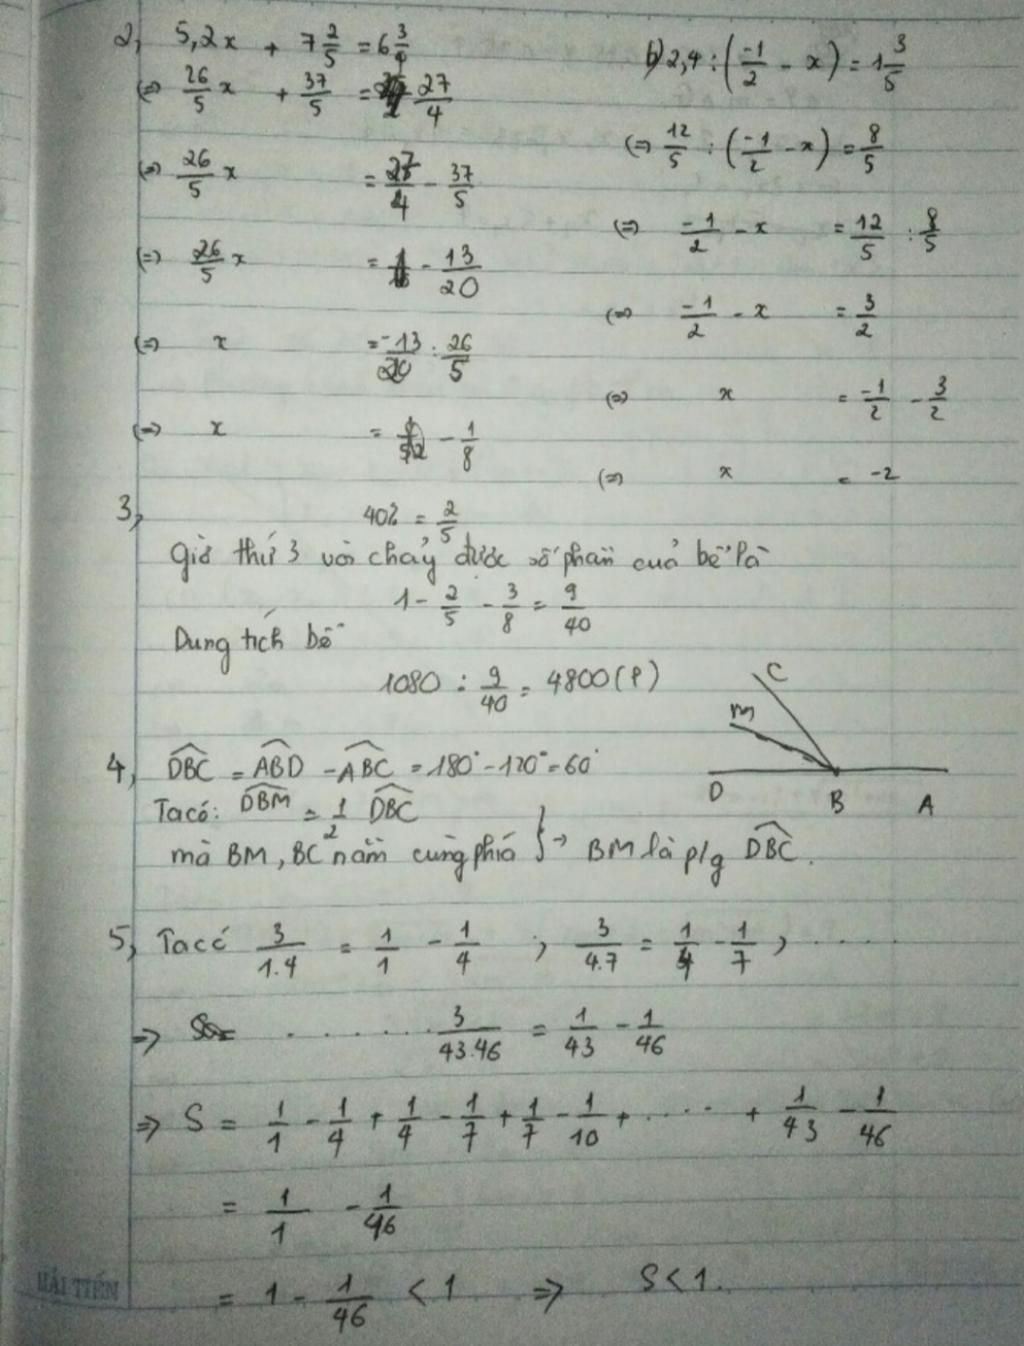 2, 5,2x + 7 2/5 = 6 3/4
(=) 26/5 x + 37/5 = 27/4
(=) 26/5 x = 27/4 - 37/5
(=) 26/5 x = - 13/20
(=) x = -13/20 : 26/5
(=) x = - 1/8
b) 2,4 : (-1/2 - x) = 1 3/5
(=) 12/5 : (-1/2 - x) = 8/5
(=) -1/2 - x = 12/5 : 8/5
(=) -1/2 - x = 3/2
(=) x = -1/2 - 3/2
(=) x = -2
3, 40% = 2/5
Giờ thứ 3 vòi chảy được số phần của bể là
1 - 2/5 - 3/8 = 9/40
Dung tích bể
1080 : 9/40 = 4800 (l)
C
M
D B A
4, DBC = ABD - ABC = 180° - 120° = 60°
Ta có: DBM = 1/2 DBC
mà BM, BC nằm cùng phía } → BM là p/g DBC.
5, Ta có 3/1.4 = 1/1 - 1/4 ; 3/4.7 = 1/4 - 1/7 ; .....
=> ....... 3/43.46 = 1/43 - 1/46
=> S = 1/1 - 1/4 + 1/4 - 1/7 + 1/7 - 1/10 + ..... + 1/43 - 1/46
= 1/1 - 1/46
= 1 - 1/46 < 1 => S < 1.
HẢI TIẾN